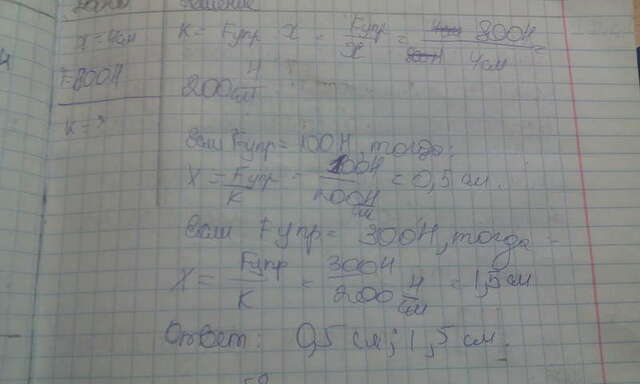 Дано Решение
x = 4см K = Fупр x = Fупр/x = 800Н/4см =
F=800Н 200 Н/см
K = ?
Если Fупр = 100Н, тогда:
X = Fупр/K = 100Н/200Н/см = 0,5 см.
Если Fупр = 300Н, тогда -
X = Fупр/K = 300Н/200 Н/см = 1,5 см
Ответ: 0,5 см; 1,5 см.